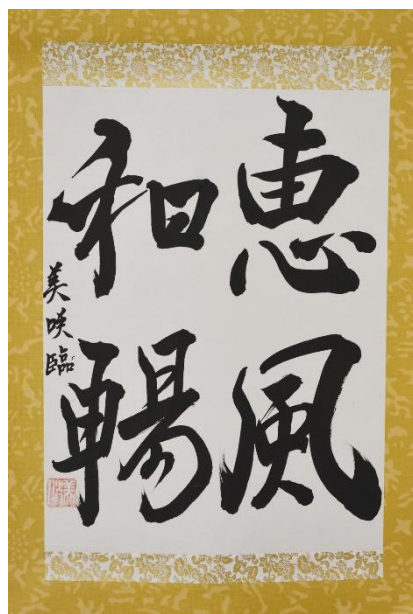 惠風
和暢
美咲臨